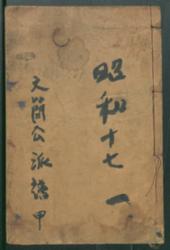 昭和十七 一
文簡公派譜 甲